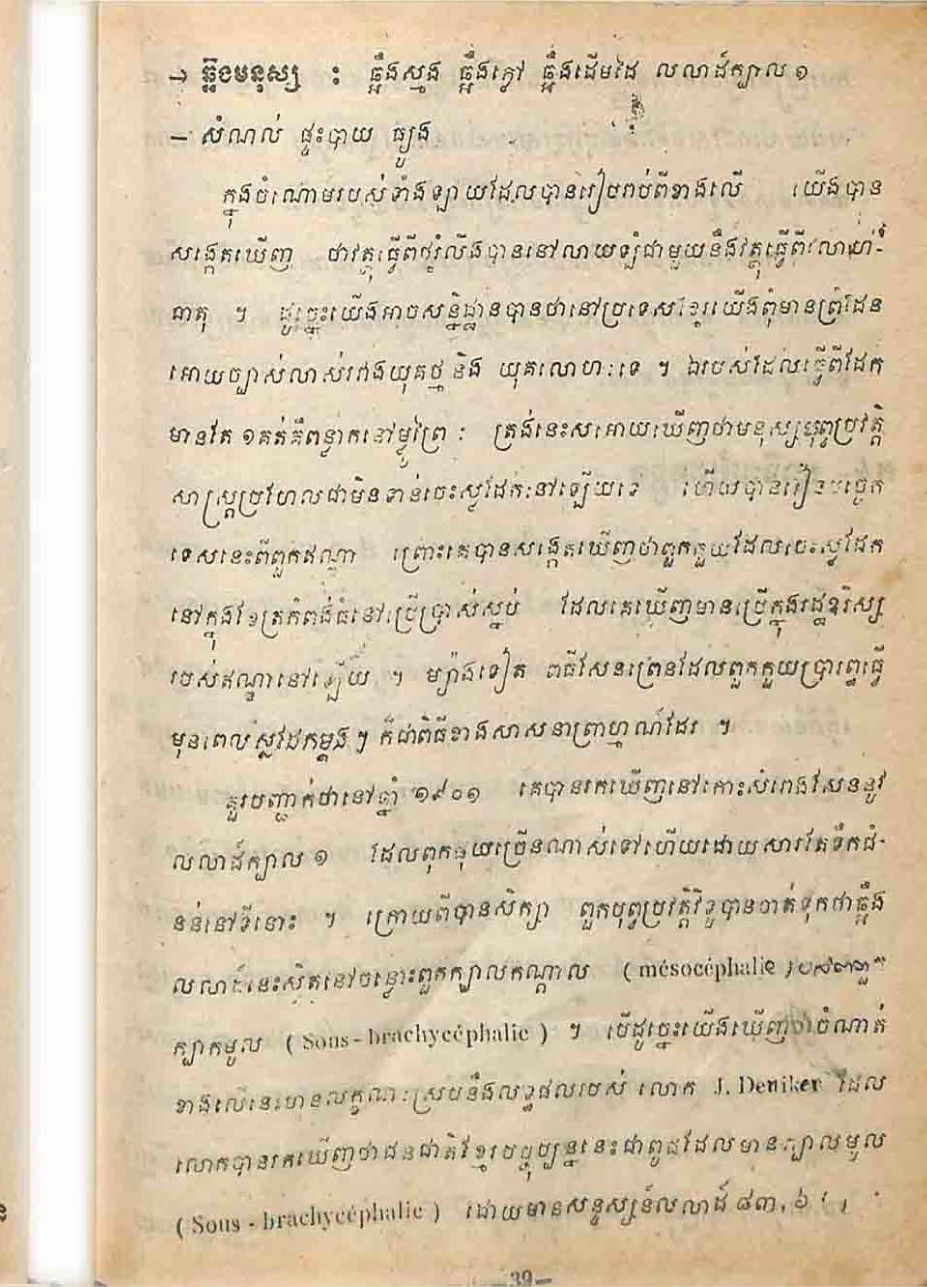 → ឆ្អឹងមនុស្ស : ឆ្អឹងស្មង ឆ្អឹងភ្លៅ ឆ្អឹងដើមដៃ លលាដ៍ក្បាល ១
– សំណល់ ផ្ទះបាយ ធ្យូង
ក្នុងចំណោមរបស់ទាំងឡាយដែលបានរៀបរាប់ពីខាងលើ យើងបាន
សង្កេតឃើញ ថាវត្ថុធ្វើពីថ្មរំលីងបាននៅលាយឡំជាមួយនឹងវត្ថុធ្វើពីលោហៈ-
ធាតុ ។ ដូច្នេះយើងអាចសន្និដ្ឋានបានថានៅប្រទេសខ្មែរយើងពុំមានព្រំដែន
អោយច្បាស់លាស់រវាងយុគថ្ម និង យុគលោហៈទេ ។ ឯរបស់ដែលធ្វើពីដែក
មានតែ ១គត់គឺពន្លាកនៅម្លូព្រៃ : ត្រង់នេះសអោយឃើញថាមនុស្សបុព្វប្រវត្តិ
សាស្ត្រប្រហែលជាមិនទាន់ចេះស្លដែកនៅឡើយទេ ហើយបានរៀនបច្ចេក
ទេសនេះពីពួកឥណ្ឌា ព្រោះគេបានសង្កេតឃើញថាពួកកួយដែលចេះស្លដែក
នៅក្នុងខែត្រកំពង់ធំនៅប្រើប្រាស់ស្នប់ ដែលគេឃើញមានប្រើក្នុងរដ្ឋឧរិស្ស
របស់ឥណ្ឌានៅឡើយ ។ ម្យ៉ាងទៀត ពធីសែនព្រេនដែលពួកកួយប្រារព្ធធ្វើ
មុនពេលស្លដែកម្ដងៗ ក៏ជាពិធីខាងសាសនាព្រាហ្មណ៍ដែរ ។
គួរបញ្ជាក់ថានៅឆ្នាំ ១៩០១ គេបានរកឃើញនៅកោះសំរោងសែននូវ
លលាដ៍ក្បាល ១ ដែលពុកផុយច្រើនណាស់ទៅហើយដោយសារតែទឹកជំ-
នន់នៅទីនោះ ។ ក្រោយពីបានសិក្សា ពួកបុព្វប្រវត្តិវិទូបានចាត់ទុកថាឆ្អឹង
លលាដ៍នេះស្ថិតនៅចន្លោះពួកក្បាលកណ្ដាល (mésocéphalie)
ក្បាកមូល (Sous - brachycéphalie) ។ បើដូច្នេះយើងឃើញថាចំណាត់
ខាងលើនេះមានលក្ខណៈស្របនឹងលទ្ធផលរបស់ លោក J. Deniker ដែល
លោកបានរកឃើញថាជនជាតិខ្មែរបច្ចុប្បន្ននេះជាពូជដែលមានក្បាលមូល
(Sous - brachycéphalie) ដោយមានសន្ទស្សន៍លលាដ៍ ៨៣,៦
—39—